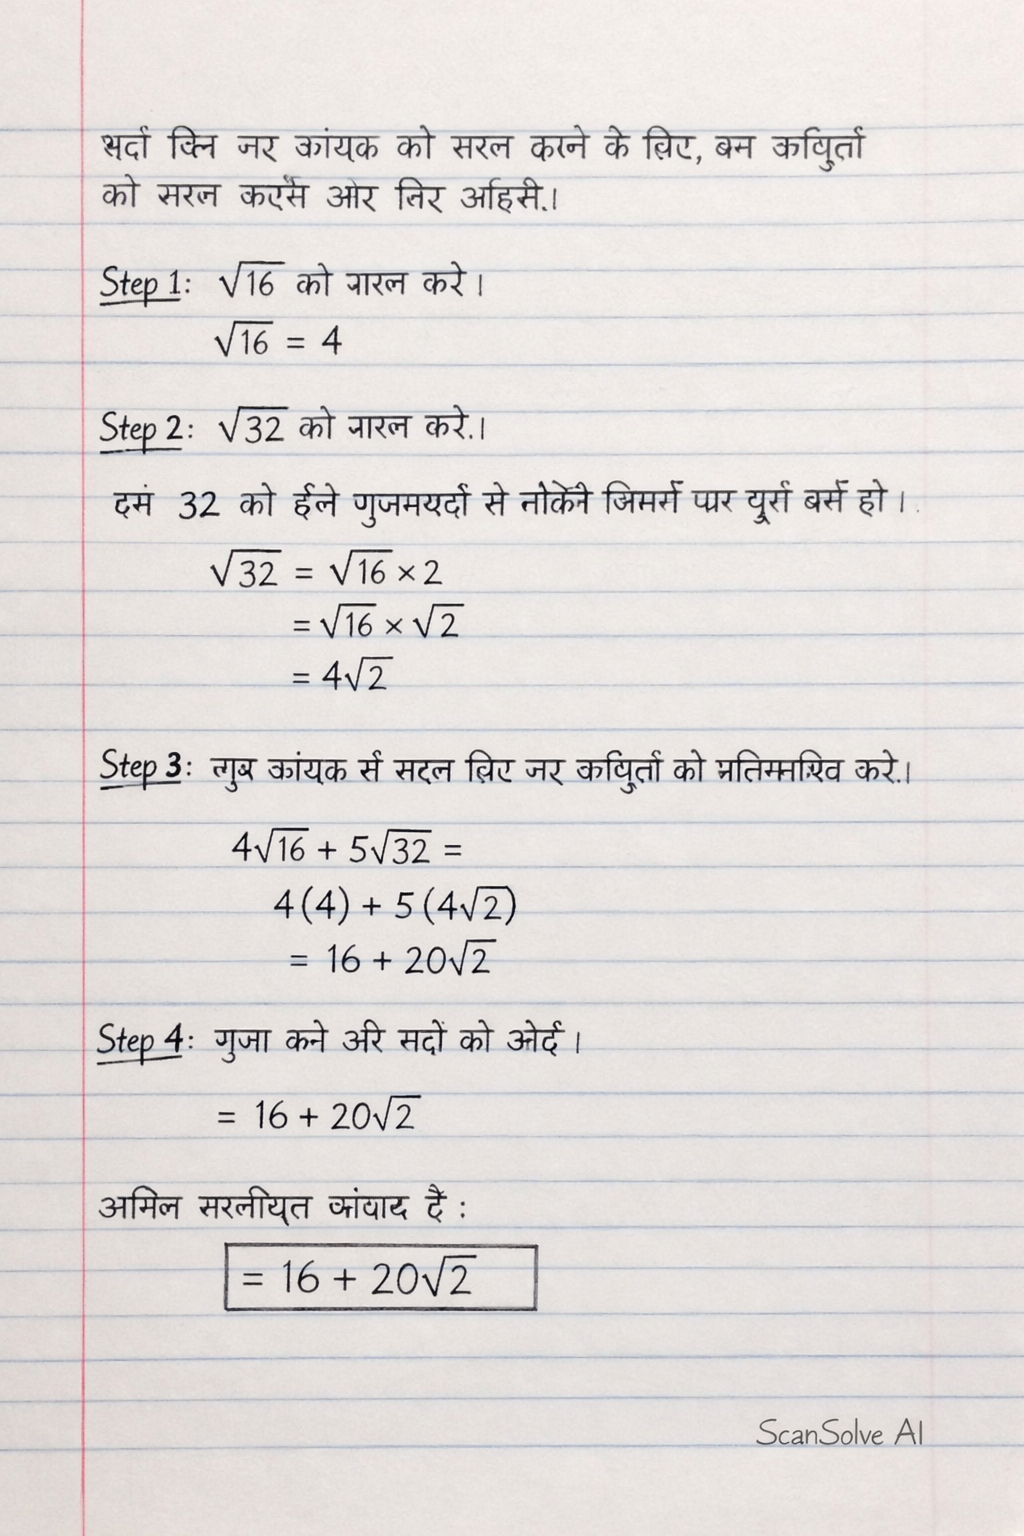 भर्दा क्नि जर कांयक को सरल करने के लिए, बम कयिुर्ता
को सरल कएर्से ओर निर अहिसी.।
Step 1: √16 को नारल करे।
√16 = 4
Step 2: √32 को नारल करे.।
दमं 32 को ईले गुजमयर्दो से नोकेने जिमर्म पार यूर्स बर्से हो।.
√32 = √16 × 2
= √16 × √2
= 4√2
Step 3: कांयक र्स सदल लिए जर कयिुर्ता को करे.।
4√16 + 5√32 =
4(4) + 5(4√2)
= 16 + 20√2
Step 4: गुजा कने अरि सदों को ओर्द।
= 16 + 20√2
अमिल सरलीयृत कांवाद दै :
= 16 + 20√2
ScanSolve AI